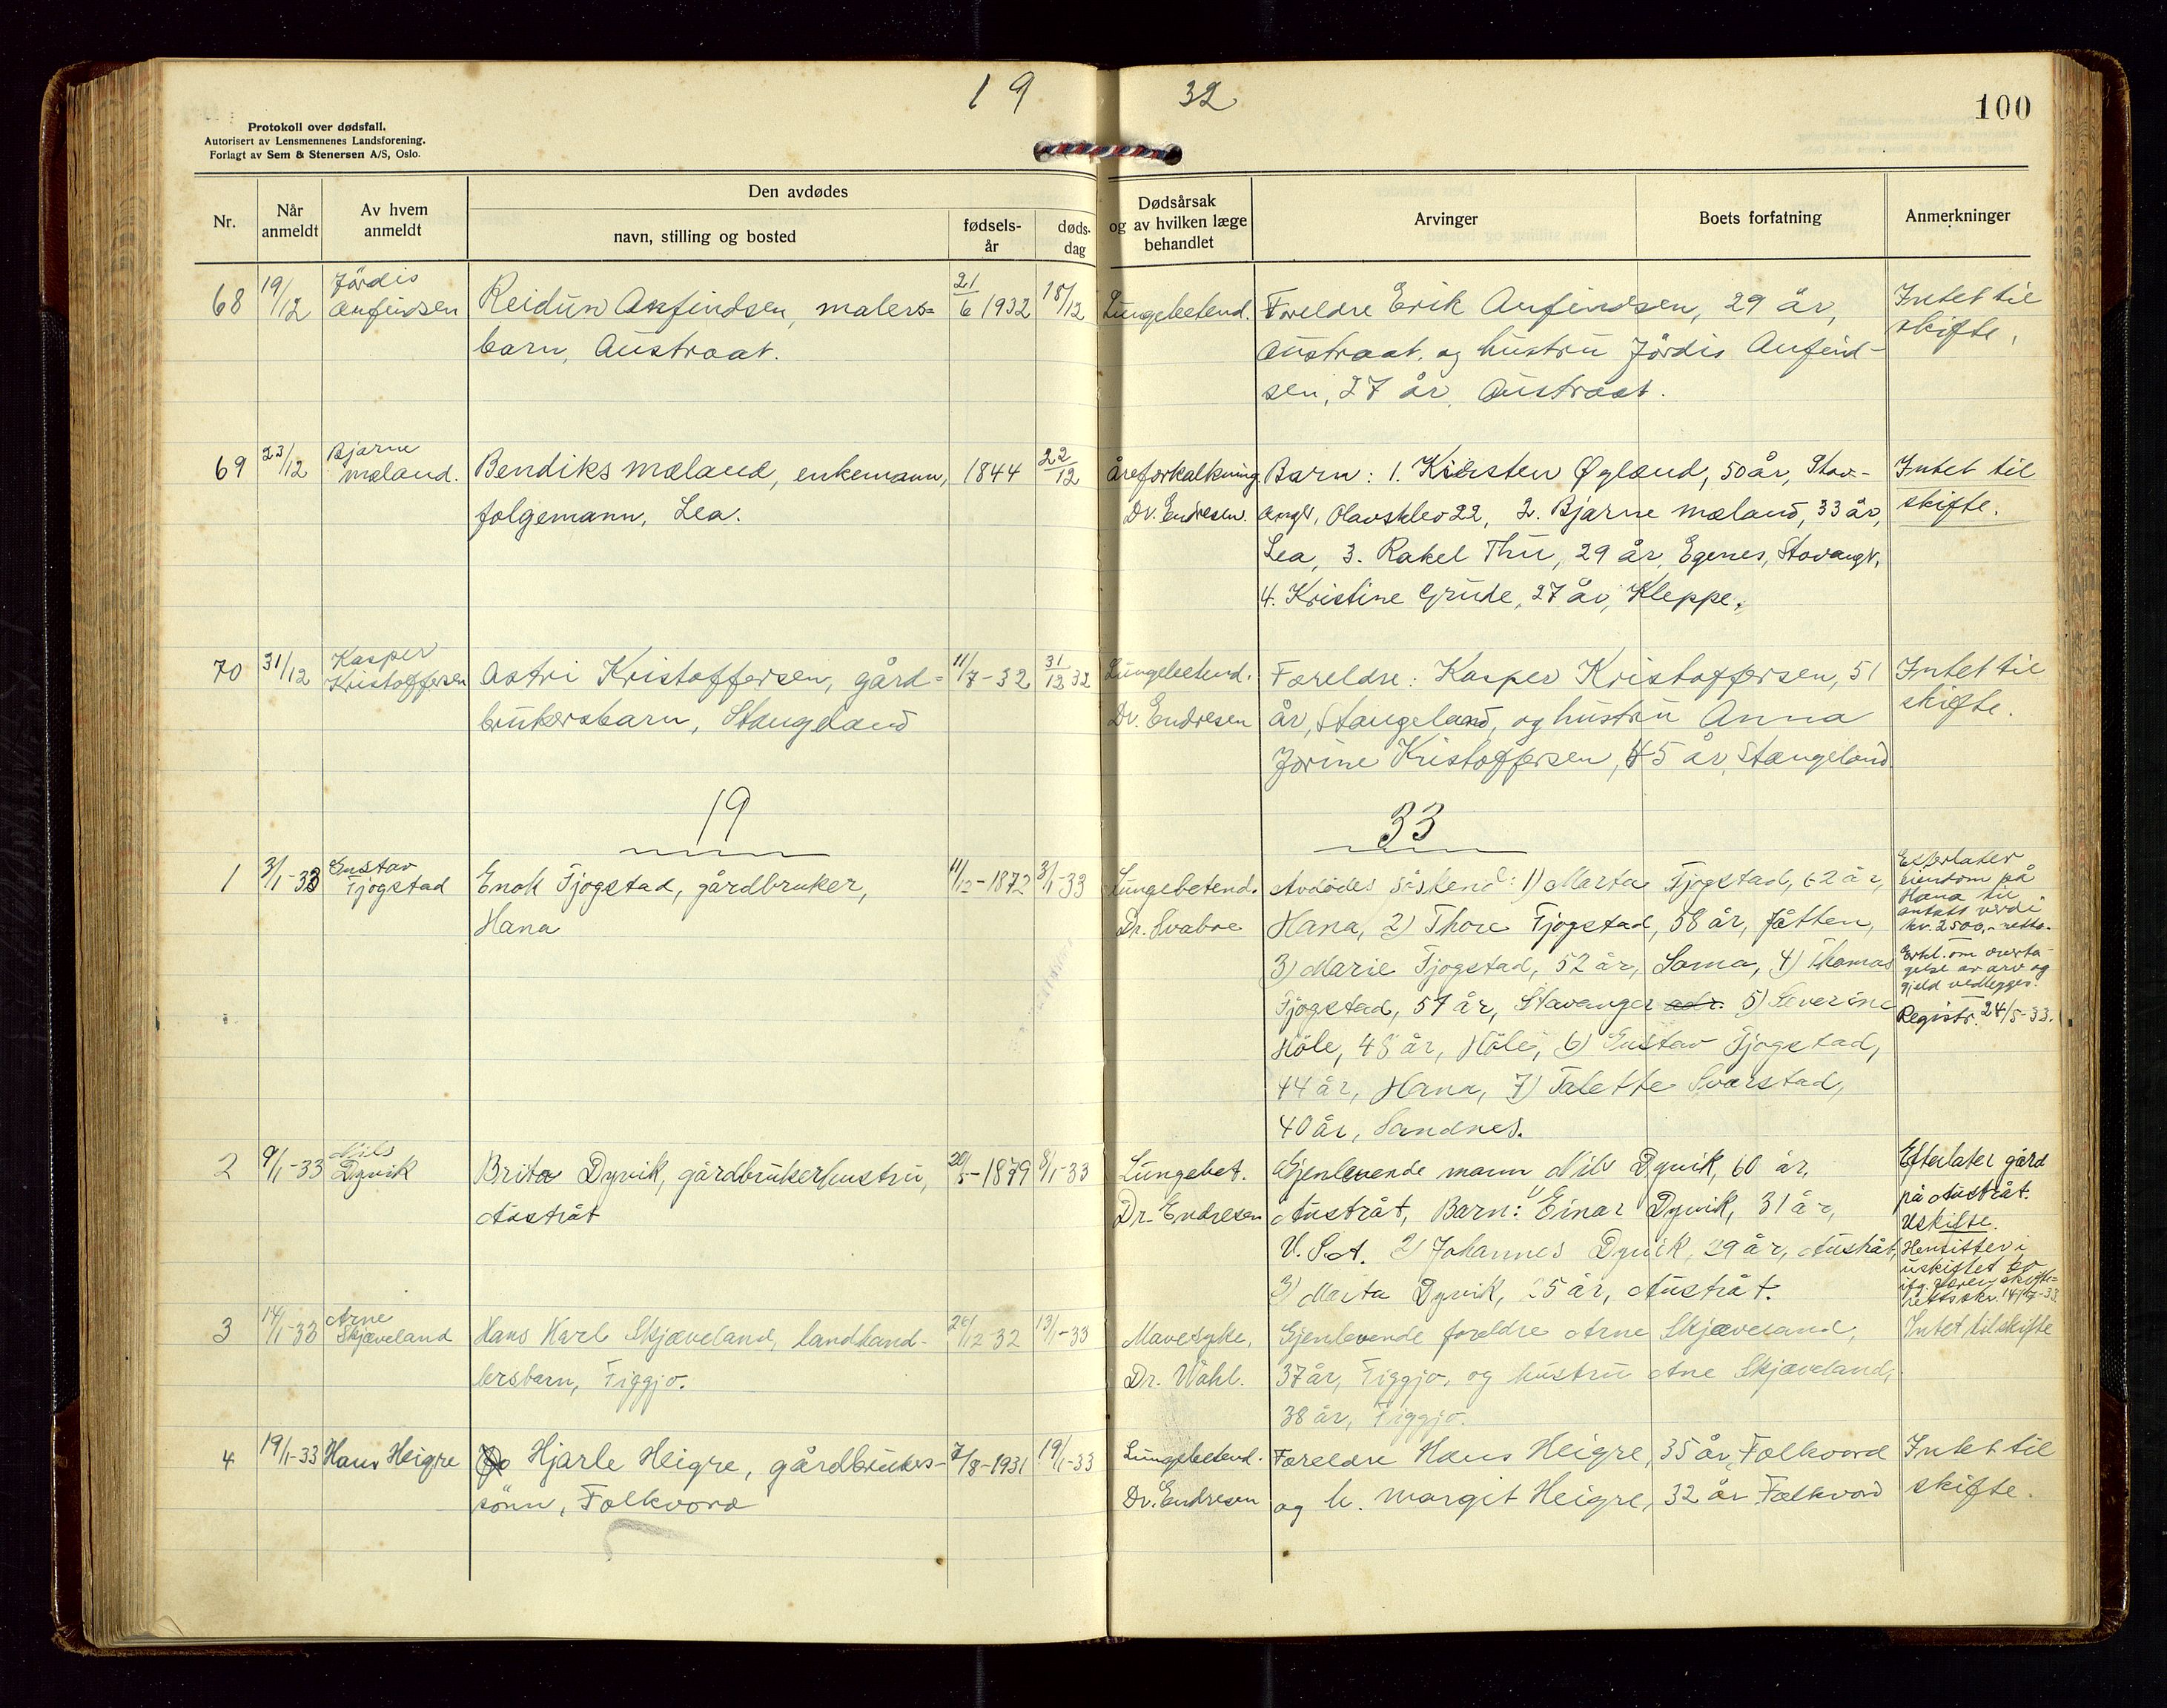 19 32
100
Protokoll over dødsfall.
Autorisert av Lensmennenes Landsforening.
Forlagt av Sem & Stenersen A/S, Oslo.
Nr. Når anmeldt Av hvem anmeldt Den avdødes navn, stilling og bosted fødsels-år døds-dag Dødsårsak og av hvilken læge behandlet Arvinger Boets forfatning Anmerkninger
68 19/12 Jördis Anfindsen Reidun Anfindsen, malers= 21/6 1932 18/12 Lungebetend. Foreldre Erik Anfindsen, 29 år, Intet til
barn, Austraat. Austraat, og hustru Jördis Anfind- skifte,
sen, 27 år, Austraat.
69 23/12 Bjarne Mæland. Bendiks Mæland, enkemann, 1844 22/12 Åreforkalkning Barn: 1. Kirsten Øgland, 50 år, Stav- Intet til
folgemann, Lea. Dr. Endresen. angr, Olavskleo 22, 2. Bjarne Mæland, 33 år, skifte.
Lea, 3. Rakel Thu, 29 år, Egenes, Stavangr,
4. Kristine Grude, 27 år, Kleppe.
70 31/12 Kasper Kristoffersen Astri Kristoffersen, gård= 11/7-32 31/12 32 Lungebetend. Foreldre: Kasper Kristoffersen, 51 Intet til
brukersbarn, Stangeland Dr. Endresen år, Stangeland, og hustru Anna skifte.
Jorine Kristoffersen, 45 år, Stangeland
19 33
1 3/1-33 Gustav Tjogstad Enok Tjogstad, gårdbruker, 11/12-1872 3/1-33 Lungebetend. Avdödes söskend: 1) Marta Tjogstad, 62 år, Efterlater eiendom på
Hana Dr. Svaboe Hana, 2) Thore Tjogstad, 58 år, Jåtten, Hana til antatt verdi kr. 2500,- netto.
3) Marie Tjogstad, 52 år, Soma, 4) Thomas Erkl. om overta-
Tjogstad, 51 år, Stavanger 5) Severine gelse av arv og gjeld vedlegges.
Höle, 48 år, Höle, 6) Gustav Tjogstad, Registr. 24/5-33.
44 år, Hana, 7) Talette Svarstad,
40 år, Sandnes.
2 9/1-33 Nils Dyvik Brita Dyvik, gårdbrukerhustru, 20/5-1879 8/1-33 Lungebet. Gjenlevende mann Nils Dyvik, 60 år, Efterlater gård
Austråt Dr. Endresen Austråt, Barn: 1) Einar Dyvik, 31 år, på Austråt.
Uskifte.
U.S.A. 2) Johannes Dyvik, 29 år, Austråt, Hensitter i
3) Marta Dyvik, 25 år, Austråt. uskiftet bo
3 14/1-33 Arne Skjæveland Hans Karl Skjæveland, landhand- 20/12-32 13/1-33 Mavesyke, Gjenlevende foreldre Arne Skjæveland, Intet til skifte
lersbarn, Figgjo. Dr. Wahl. 37 år, Figgjo, og hustru Ane Skjæveland,
38 år, Figgjo.
4 19/1-33 Hans Heigre Hjarle Heigre, gårdbrukers- 7/8-1931 19/1-33 Lungebetend. Foreldre Hans Heigre, 35 år, Folkvord Intet til
sönn, Folkvord Dr. Endresen og h. Margit Heigre, 32 år Folkvord skifte.